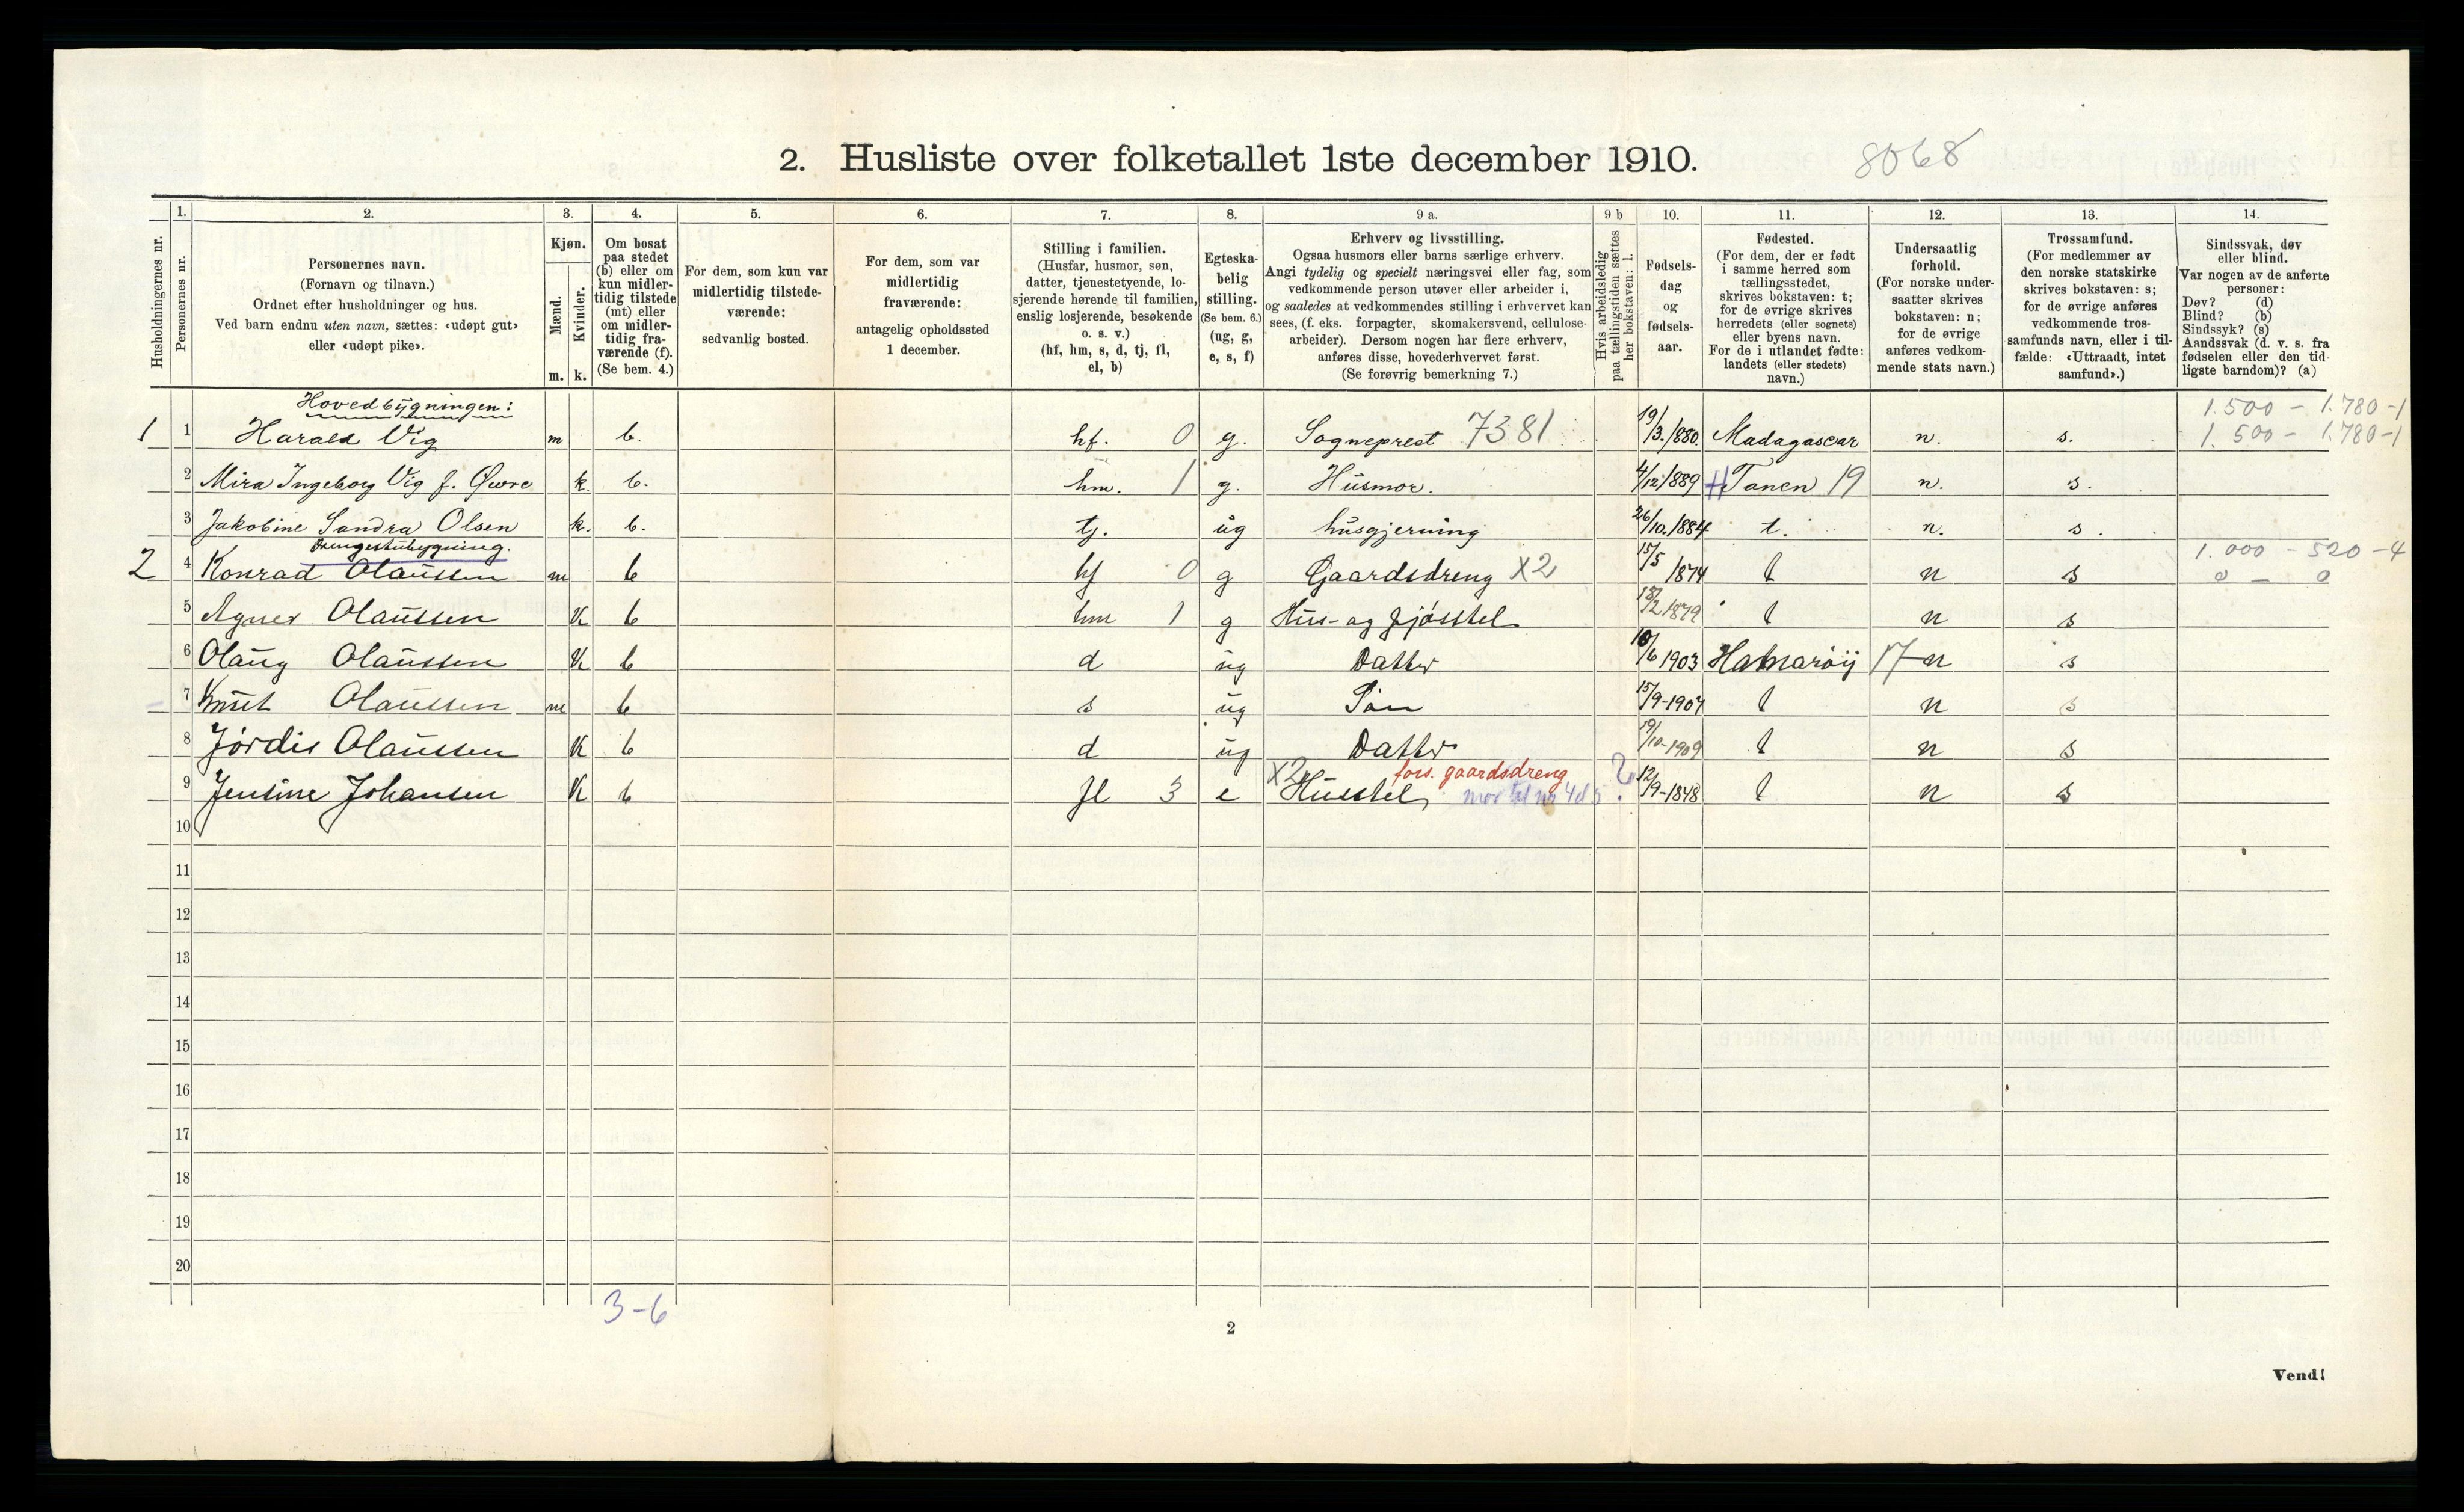 2. Husliste over folketallet 1ste december 1910.
8068
Husholdningernes nr.
1.
Personernes nr.
2.
Personernes navn.
(Fornavn og tilnavn.)
Ordnet efter husholdninger og hus.
Ved barn endnu uten navn, sættes: «udøpt gut»
eller «udøpt pike».
3.
Kjøn.
Mænd.
Kvinder.
m. k.
4.
Om bosat
paa stedet
(b) eller om
kun midler-
tidig tilstede
(mt) eller
om midler-
tidig fra-
værende (f).
(Se bem. 4.)
5.
For dem, som kun var
midlertidig tilstede-
værende:
sedvanlig bosted.
6.
For dem, som var
midlertidig
fraværende:
antagelig opholdssted
1 december.
7.
Stilling i familien.
(Husfar, husmor, søn,
datter, tjenestetyende, lo-
sjerende hørende til familien,
enslig losjerende, besøkende
o. s. v.)
(hf, hm, s, d, tj, fl,
el, b)
8.
Egteska-
belig
stilling.
(Se bem. 6.)
(ug, g,
e, s, f)
9 a.
Erhverv og livsstilling.
Ogsaa husmors eller barns særlige erhverv.
Angi tydelig og specielt næringsvei eller fag, som
vedkommende person utøver eller arbeider i,
og saaledes at vedkommendes stilling i erhvervet kan
sees, (f. eks. forpagter, skomakersvend, cellulose-
arbeider). Dersom nogen har flere erhverv,
anføres disse, hovederhvervet først.
(Se forøvrig bemerkning 7.)
9 b
Hvis arbeidsledig
paa tællingstiden sættes
her bokstaven: l.
10.
Fødsels-
dag
og
fødsels-
aar.
11.
Fødested.
(For dem, der er født
i samme herred som
tællingsstedet,
skrives bokstaven: t;
for de øvrige skrives
herredets (eller sognets)
eller byens navn.
For de i utlandet fødte:
landets (eller stedets)
navn.)
12.
Undersaatlig
forhold.
(For norske under-
saatter skrives
bokstaven: n;
for de øvrige
anføres vedkom-
mende stats navn.)
13.
Trossamfund.
(For medlemmer av
den norske statskirke
skrives bokstaven: s;
for de øvrige anføres
vedkommende tros-
samfunds navn, eller i til-
fælde: «Uttraadt, intet
samfund».)
14.
Sindssvak, døv
eller blind.
Var nogen av de anførte
personer:
Døv? (d)
Blind? (b)
Sindssyk? (s)
Aandssvak (d. v. s. fra
fødselen eller den tid-
ligste barndom)? (a)
Hovedbygningen: 1.500 - 1.780 -1
1 1 Harald Vig m b. hf. 0 g. Sogneprest 7381 19/3.1880. Madagascar n. s. 1.500 - 1.780 -1
2 Mira Ingeborg Vig f. Øwre k. b. hm. 1 g. Husmor. 4/12 1889 Tanen 19 n. s.
3 Jakobine Sandra Olsen k. b. tj. ug husgjerning 26/10.1884 t. n. s.
Drengestubygning. 1.000 - 520 -4
2 4 Konrad Olaussen m b hf 0 g Gaardsdreng X2 15/5 1874 t n s 0 - 0
5 Agnes Olaussen K b hm 1 g Hus- og fjøsstel 1879 t n s
6 Olaug Olaussen K b d ug Datter /6 1903 Hamarøy 17 n s
7 Knut Olaussen m b s ug Søn 15/9-1907 t n s
8 Jørdis Olaussen K b d ug Datter 19/10-1909 t n s
fors. gaardsdreng
9 Jensine Johansen K b fl 3 e X2 Husstel, mor til nr 4 el 5 ? 12/9-1848 t n s
10
11
12
13
14
15
16
17
18
19
20
3-6
2
Vend!